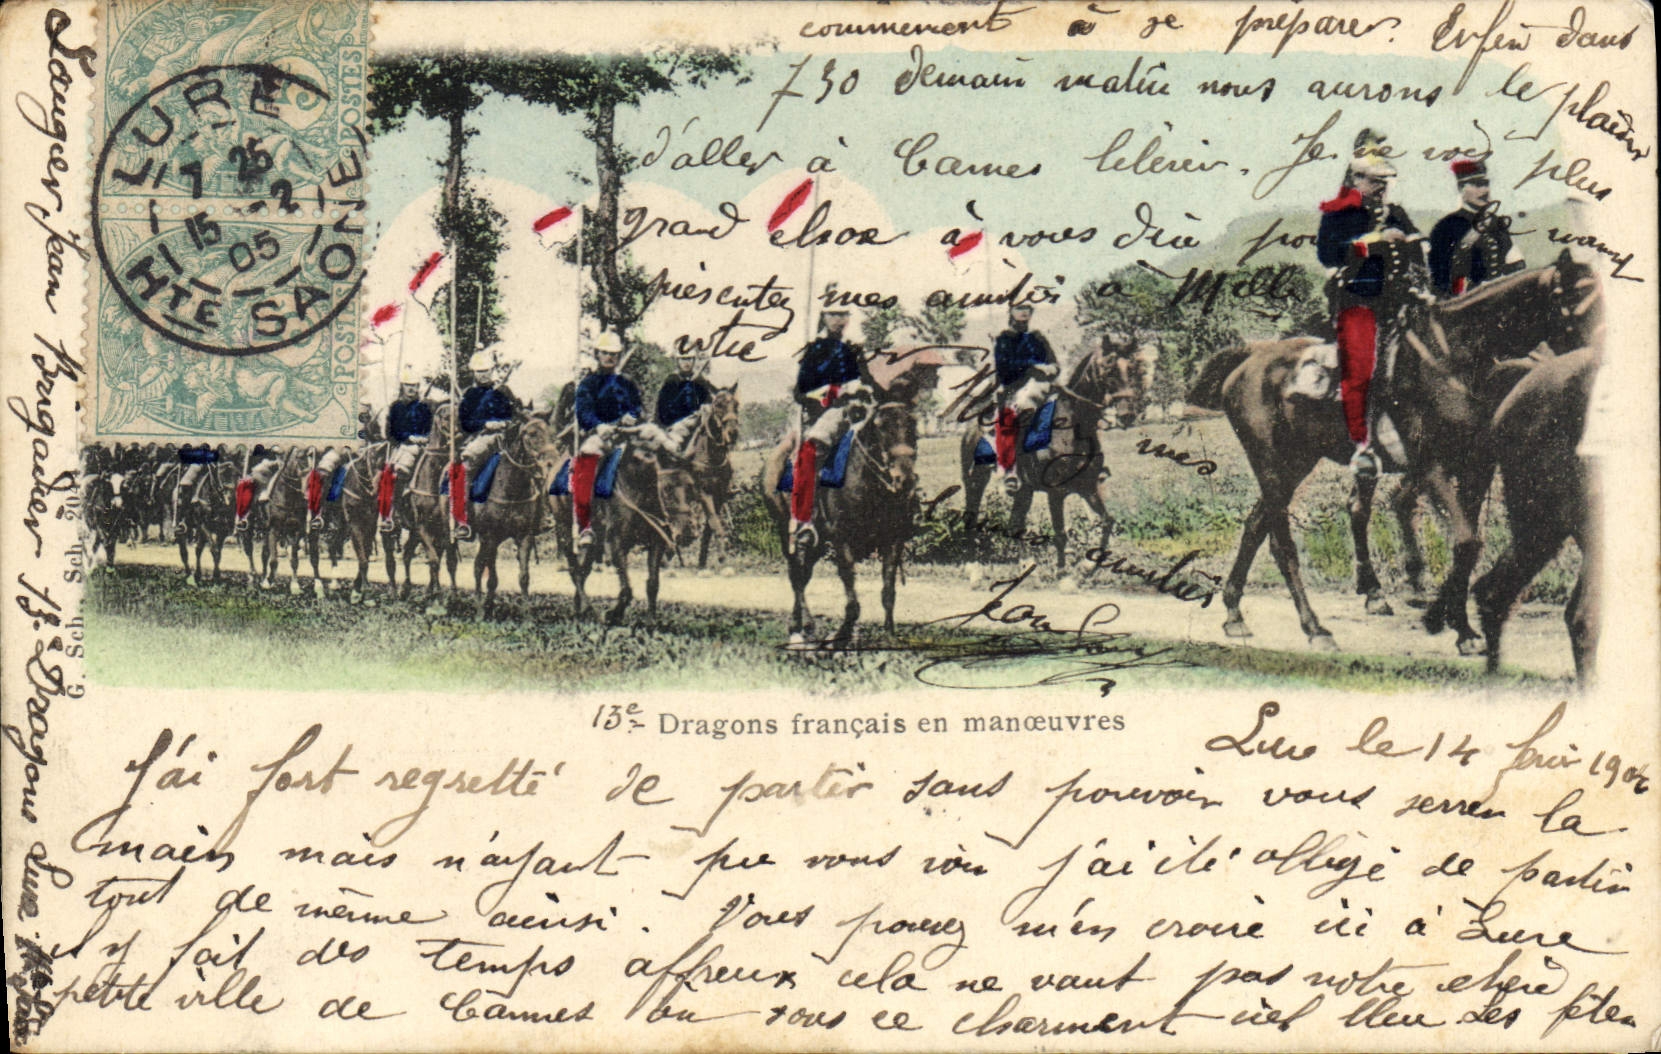 13e Dragons français en manœuvres
Lure le 14
J'ai fort regretté de partir sans pouvoir vous serrer la
main mais n'ayant pu vous voir j'ai été obligé de partir
tout de même ainsi. Vous pouvez m'en croire ici à Lure
il y fait des temps affreux cela ne vaut pas notre chère
petite ville de Cannes où sous ce charment ciel bleu les fêtes
commencent à se préparer. Enfin dans
730 demain matin nous aurons le plaisir
d'aller à Cannes Je ne vois plus
grand chose à vous dire
présenter mes amitiés à Melle
votre
mes
amitiés
Jean
Laugier Jean Brigadier 13e Dragons Lure Hte Saône
G. Sch. Sch. 204
LURE
7 25
15 -2
05
HTE SAONE
POSTES
POSTES